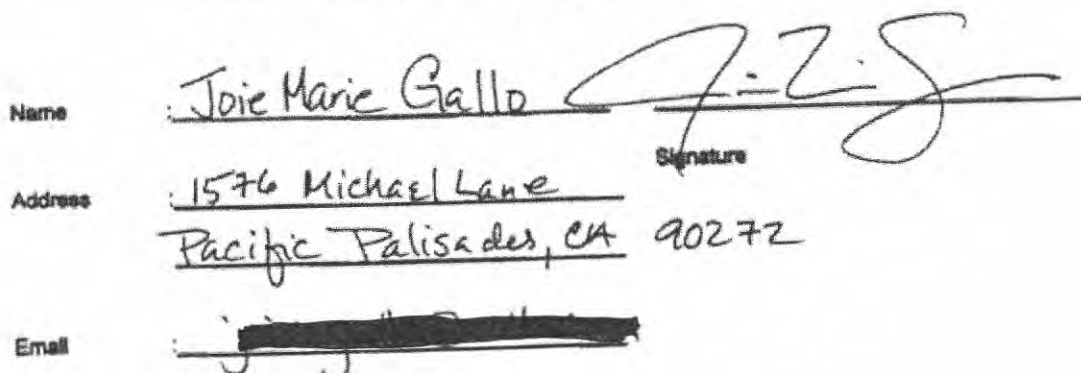 Name : Joie Marie Gallo
Signature
Address : 1576 Michael Lane
Pacific Palisades, CA 90272
Email :